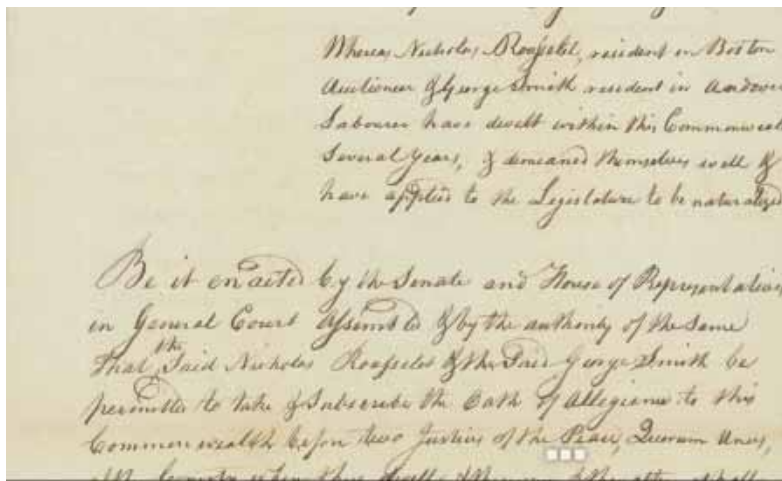 Whereas Nicholas Rousselet, resident in Boston
Auctioneer & George Smith resident in Andover
Labourer have dwelt within this Commonweal
Several years, & demeaned themselves well &
have applied to the Legislature to be naturalized
Be it enacted by the Senate and House of Representatives
in General Court Assembled & by the authority of the Same
That the Said Nicholas Rousselet & the Said George Smith be
permitted to take & Subscribe the Oath of Allegiance to this
Commonwealth before two Justices of the Peace, Quorum Unus,
County where they dwell &